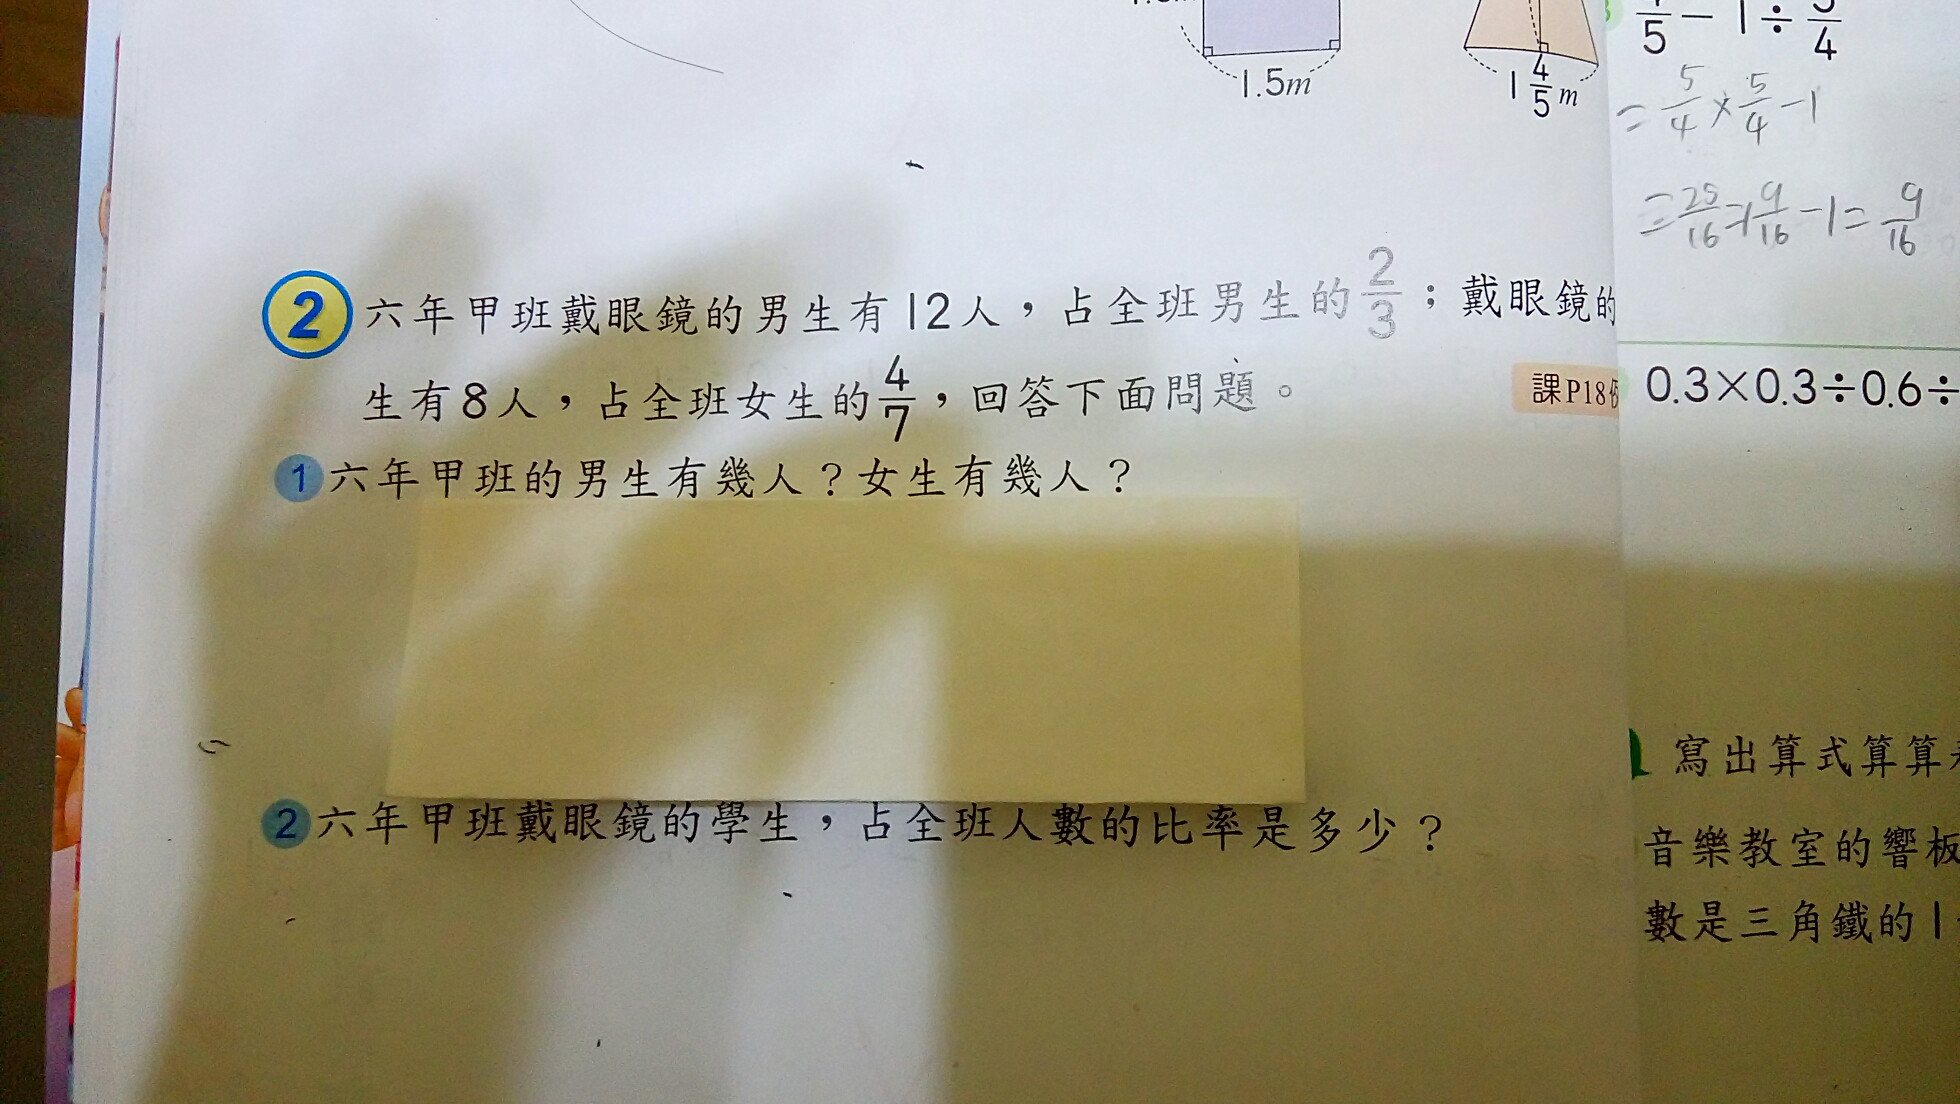 1.5m
1 4/5 m
2 六年甲班戴眼鏡的男生有12人，占全班男生的2/3；戴眼鏡的
生有8人，占全班女生的4/7，回答下面問題。
課P18
1 六年甲班的男生有幾人？女生有幾人？
2 六年甲班戴眼鏡的學生，占全班人數的比率是多少？
5 − 1÷ 4
= 5/4 × 5/4 − 1
= 25/16 = 1 9/16 − 1 = 9/16
0.3×0.3÷0.6÷
寫出算式算算
音樂教室的響板
數是三角鐵的1